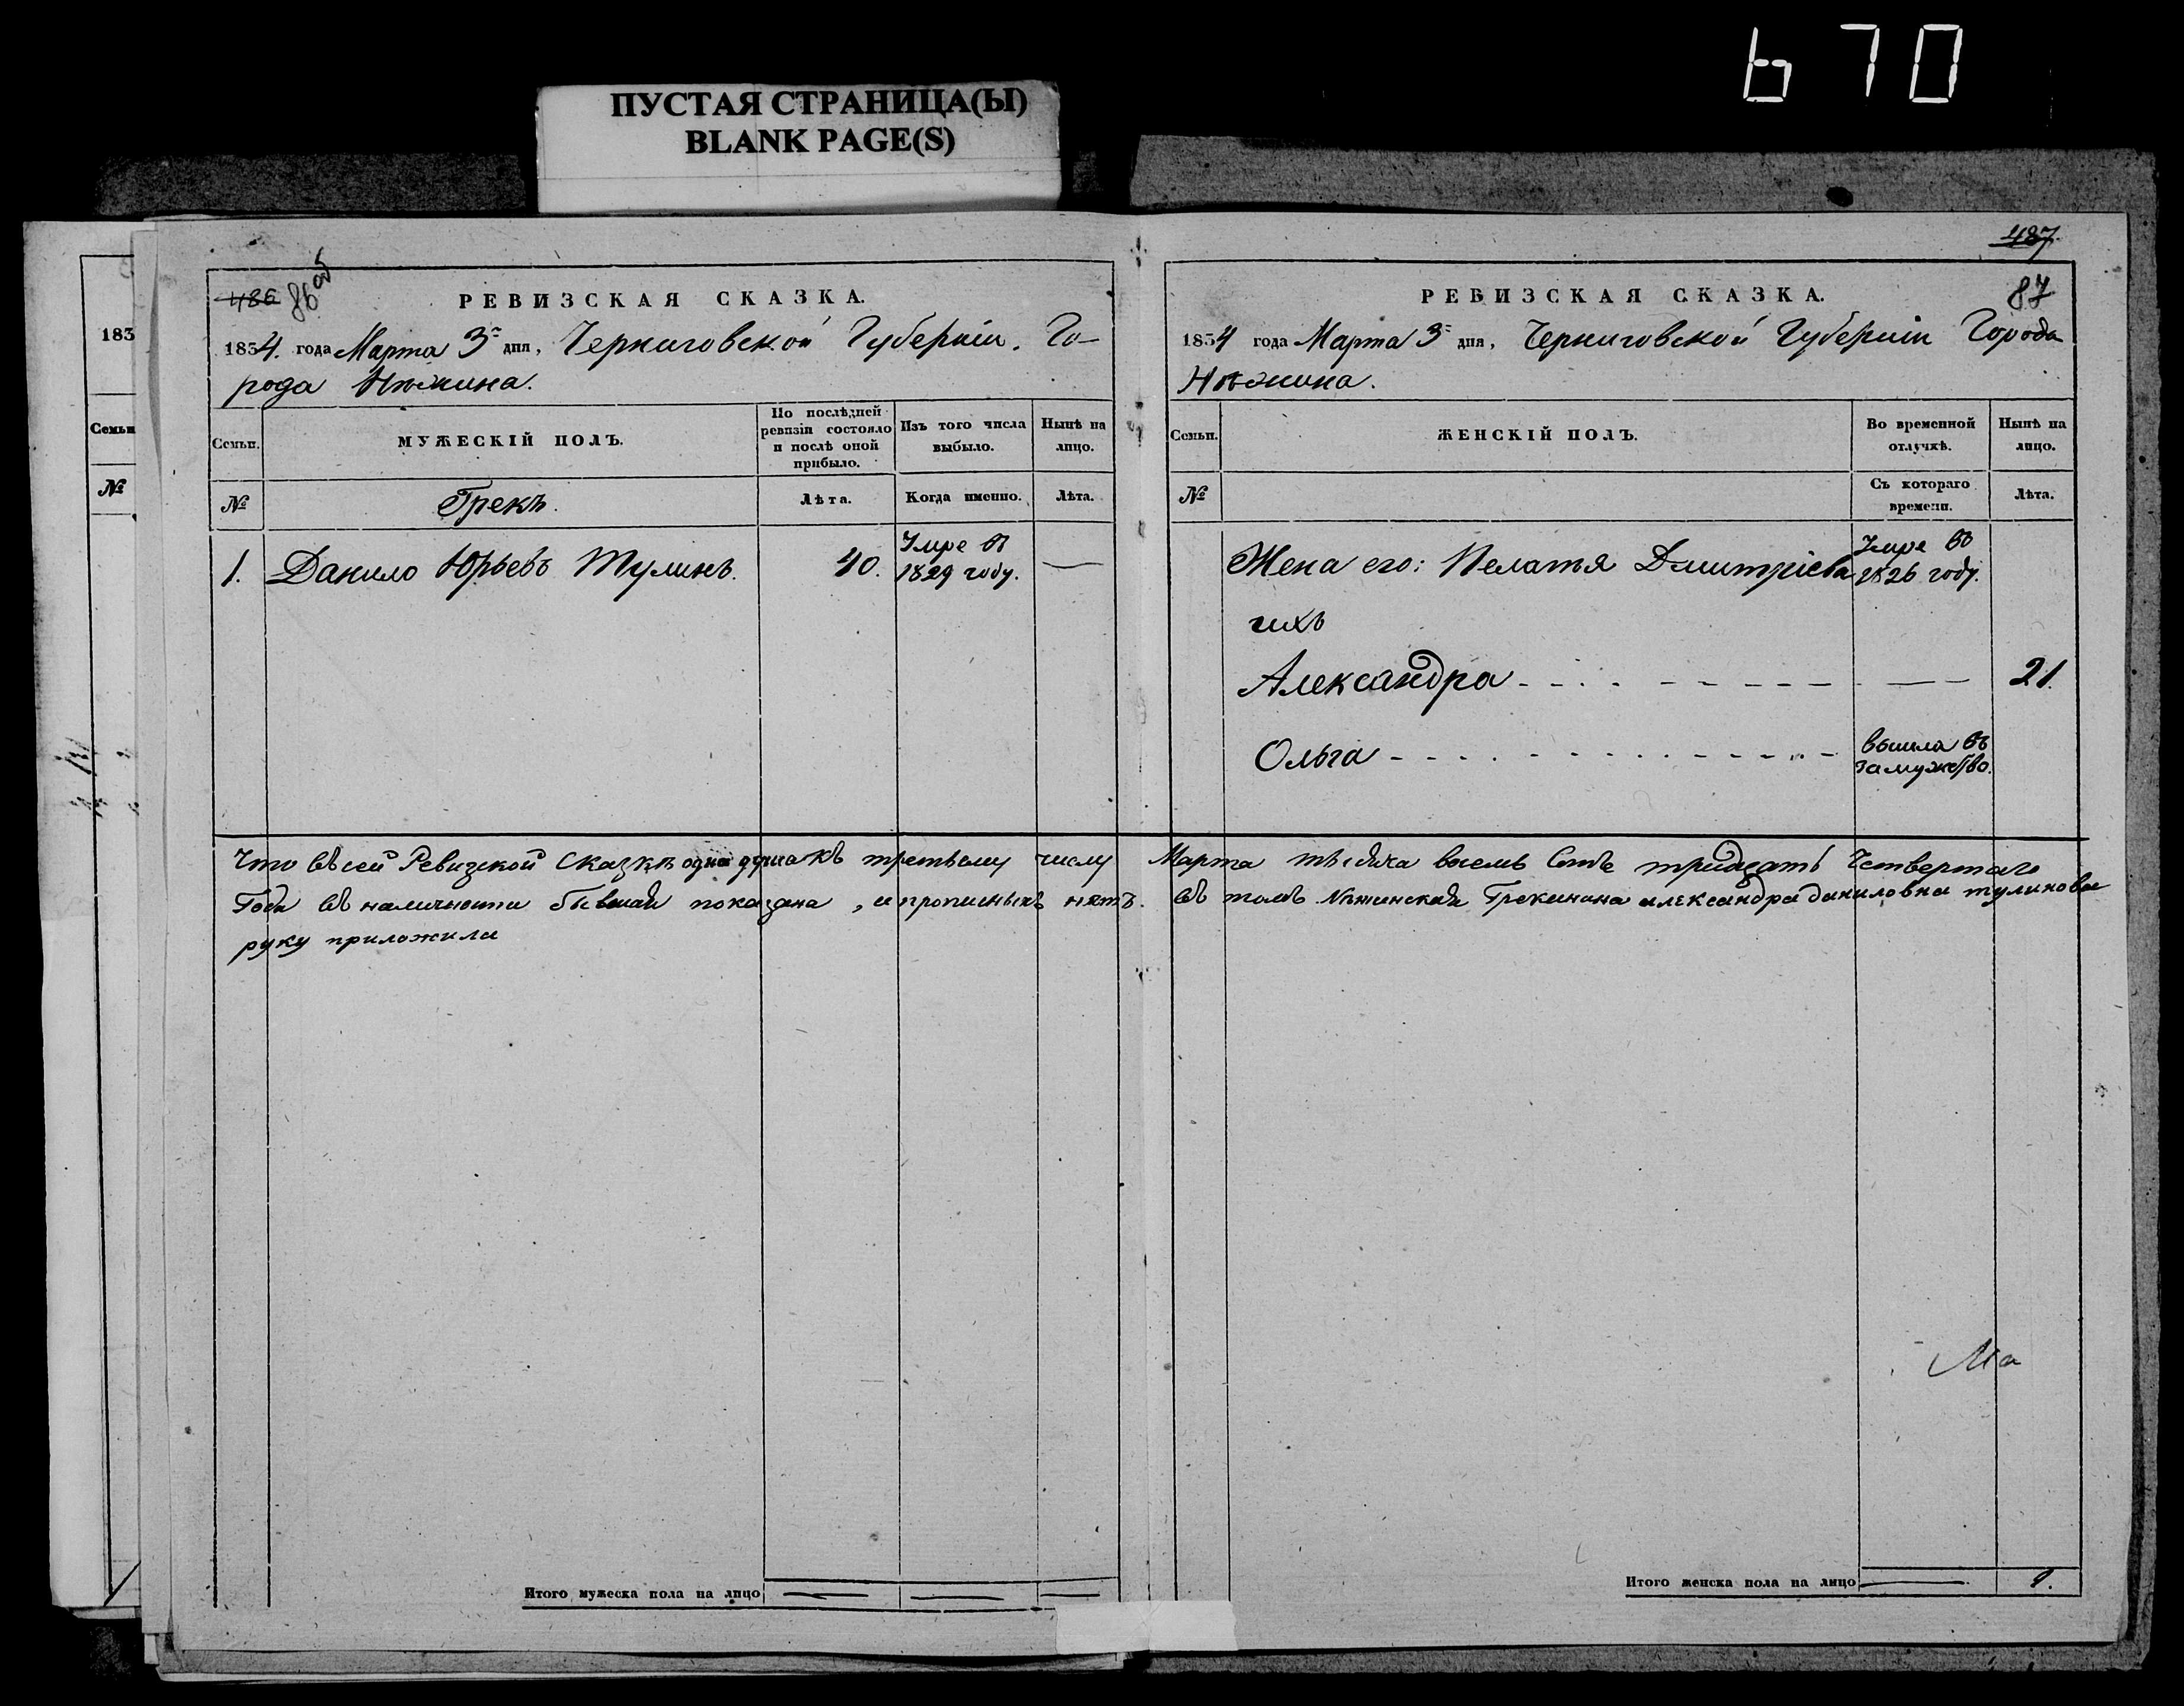 670
ПУСТАЯ СТРАНИЦА(Ы)
BLANK PAGE(S)
183
Семьи
№
486
86 об
РЕВИЗСКАЯ СКАЗКА.
1834. года Марта 3 дня, Черниговской Губерніи. Го-
рода Нѣжина.
Семьи.
МУЖЕСКІЙ ПОЛЪ.
По послѣдней ревизіи состояло и послѣ оной прибыло.
Изъ того числа выбыло.
Нынѣ на лицо.
№
Грекъ.
Лѣта.
Когда именно.
Лѣта.
1. Данило Юрьевъ Тулинъ. 40. Умре въ 1829 году. —
487
87
РЕВИЗСКАЯ СКАЗКА.
1834 года Марта 3 дня, Черниговской Губерніи Города
Нѣжина.
Семьи.
ЖЕНСКІЙ ПОЛЪ.
Во временной отлучкѣ.
Нынѣ на лицо.
№
Съ котораго времени.
Лѣта.
Жена его: Пелагія Дмитріева Умре въ 1826 году.
ихъ
Александра - - - - - - - - - - — 21.
Ольга - - - - - - - - - - - - вышла въ замужество.
Что въ сей Ревизской Сказкѣ одна душа къ третьему числу Марта тысяча восемь Сотъ тридцать Четвертаго
Года въ наличности бывшая показана, и прописныхъ нѣтъ. въ томъ Нѣжинская Грекинина александра даниловна тулинова
руку приложила
Ма
Итого мужеска пола на лицо — — —
Итого женска пола на лицо — 1.